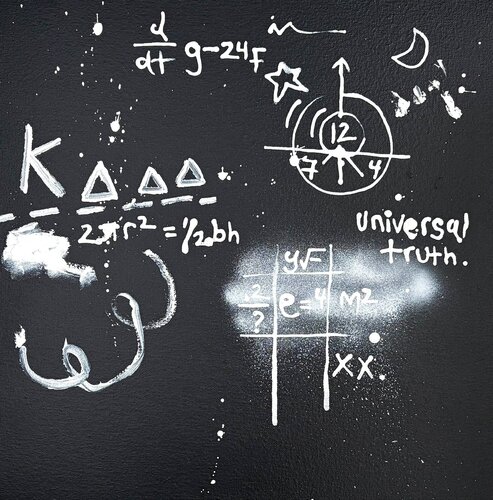 d/dt g-24F
12
7 4
K Δ Δ Δ
2πr² = 1/2bh
universal
truth.
y√
.2/? e=4 m²
xx.